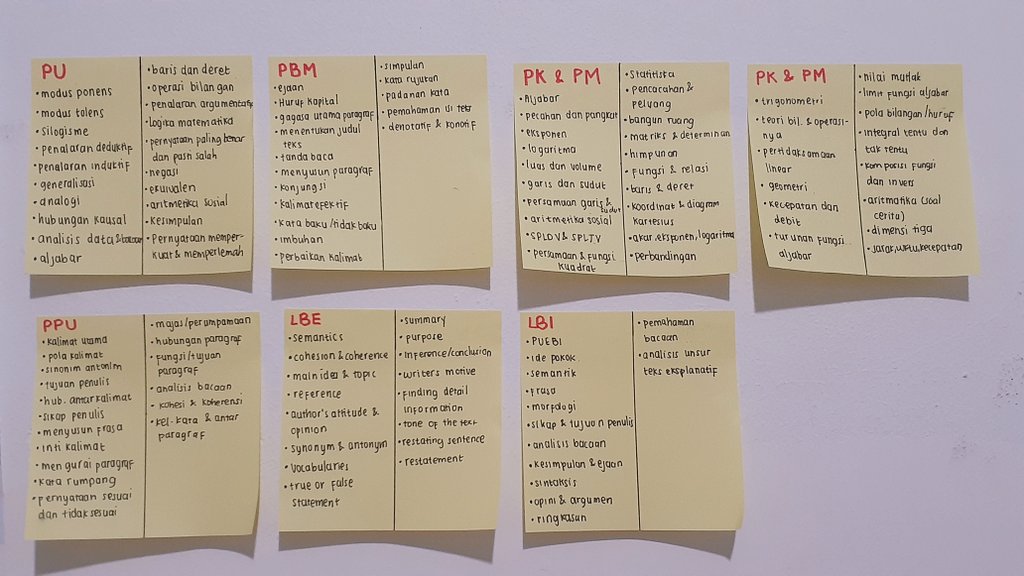 PU
• modus ponens
• modus tolens
• silogisme
• penalaran deduktif
• penalaran induktif
• generalisasi
• analogi
• hubungan kausal
• analisis data & bacaan
• aljabar
• baris dan deret
• operasi bilangan
• penalaran argumentatif
• logika matematika
• pernyataan paling benar
dan pasti salah
• negasi
• ekuivalen
• aritmetika sosial
• kesimpulan
• Pernyataan memper-
kuat & memperlemah
PBM
• ejaan
• Huruf kapital
• gagasa utama paragraf
• menentukan judul
teks
• tanda baca
• menyusun paragraf
• konjungsi
• kalimat efektif
• kata baku / tidak baku
• imbuhan
• perbaikan kalimat
• simpulan
• kata rujukan
• padanan kata
• pemahaman isi teks
• denotatif & konotif
PK & PM
Aljabar
• pecahan dan pangkat
• eksponen
• logaritma
• luas dan volume
• garis dan sudut
• persamaan garis &
sudut
• aritmetika sosial
• SPLDV & SPLTV
• persamaan & fungsi
kuadrat
• Statistika
• pencacahan &
peluang
• bangun ruang
• matriks & determinan
• himpunan
• fungsi & relasi
• baris & deret
• koordinat & diagram
kartesius
• akar, eksponen, logaritma
• perbandingan
PK & PM
• trigonometri
• teori bil. & operasi-
nya
• pertidaksamaan
linear
• geometri
• kecepatan dan
debit
• turunan fungsi
aljabar
• nilai mutlak
• limit fungsi aljabar
• pola bilangan / huruf
• integral tentu dan
tak tentu
• komposisi fungsi
dan invers
• aritmatika (soal
cerita)
• dimensi tiga
• jarak, waktu, kecepatan
PPU
• kalimat utama
• pola kalimat
• sinonim antonim
• tujuan penulis
• hub. antar kalimat
• sikap penulis
• menyusun frasa
• inti kalimat
• mengurai paragraf
• kata rumpang
• pernyataan sesuai
dan tidak sesuai
• majas/perumpamaan
• hubungan paragraf
• fungsi/tujuan
paragraf
• analisis bacaan
• kohesi & koherensi
• kel. kata & antar
paragraf
LBE
• semantics
• cohesion & coherence
• main idea & topic
• reference
• author's attitude &
opinion
• synonym & antonym
• vocabularies
• true or false
statement
• summary
• purpose
• inference/conclusion
• writers motive
• finding detail
information
• tone of the text
• restating sentence
• restatement
LBI
• PUEBI
• ide pokok
• semantik
• frasa
• morfologi
• sikap & tujuan penulis
• analisis bacaan
• kesimpulan & ejaan
• sintaksis
• opini & argumen
• ringkasan
• pemahaman
bacaan
• analisis unsur
teks eksplanatif